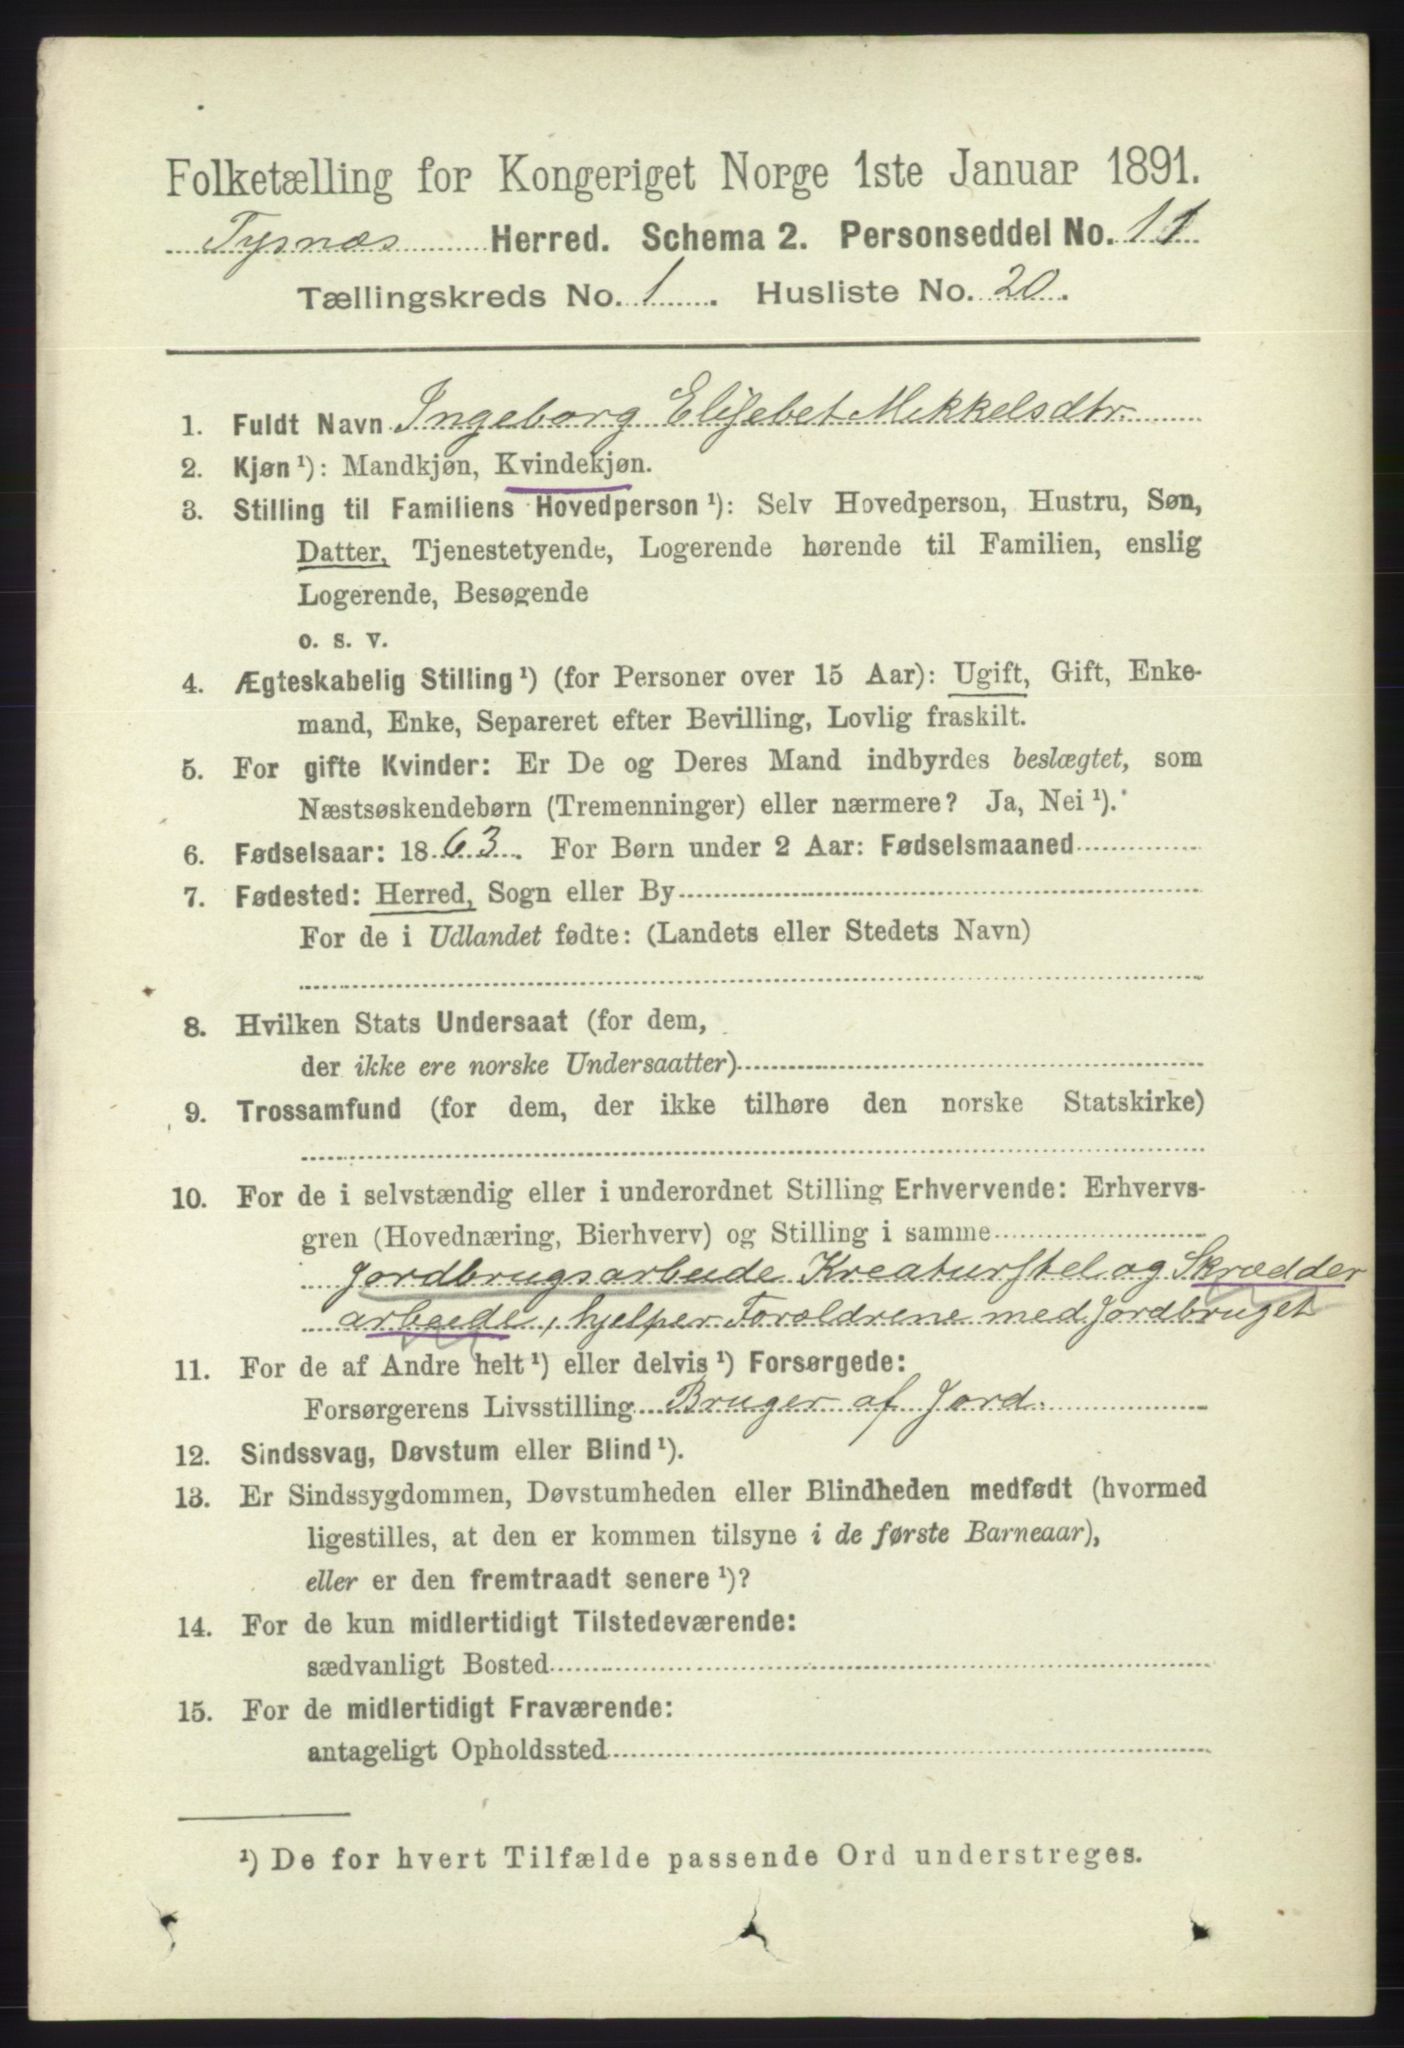 Folketælling for Kongeriget Norge 1ste Januar 1891.
Tysnæs Herred. Schema 2. Personseddel No. 11
Tællingskreds No. 1. Husliste No. 20.
1. Fuldt Navn Ingeborg Elisebet Mikkelsdtr.
2. Kjøn ¹): Mandkjøn, Kvindekjøn.
3. Stilling til Familiens Hovedperson ¹): Selv Hovedperson, Hustru, Søn,
Datter, Tjenestetyende, Logerende hørende til Familien, enslig
Logerende, Besøgende
o. s. v.
4. Ægteskabelig Stilling ¹) (for Personer over 15 Aar): Ugift, Gift, Enke-
mand, Enke, Separeret efter Bevilling, Lovlig fraskilt.
5. For gifte Kvinder: Er De og Deres Mand indbyrdes beslægtet, som
Næstsøskendebørn (Tremenninger) eller nærmere? Ja, Nei ¹).
6. Fødselsaar: 1863. For Børn under 2 Aar: Fødselsmaaned
7. Fødested: Herred, Sogn eller By
For de i Udlandet fødte: (Landets eller Stedets Navn)
8. Hvilken Stats Undersaat (for dem,
der ikke ere norske Undersaatter)
9. Trossamfund (for dem, der ikke tilhøre den norske Statskirke)
10. For de i selvstændig eller i underordnet Stilling Erhvervende: Erhvervs-
gren (Hovednæring, Bierhverv) og Stilling i samme
Jordbrugsarbeide Kreaturstel og Skrædder
arbeide, hjelper Forældrene med Jordbruget
11. For de af Andre helt ¹) eller delvis ¹) Forsørgede:
Forsørgerens Livsstilling Bruger af Jord.
12. Sindssvag, Døvstum eller Blind ¹).
13. Er Sindssygdommen, Døvstumheden eller Blindheden medfødt (hvormed
ligestilles, at den er kommen tilsyne i de første Barneaar),
eller er den fremtraadt senere ¹)?
14. For de kun midlertidigt Tilstedeværende:
sædvanligt Bosted
15. For de midlertidigt Fraværende:
antageligt Opholdssted
¹) De for hvert Tilfælde passende Ord understreges.